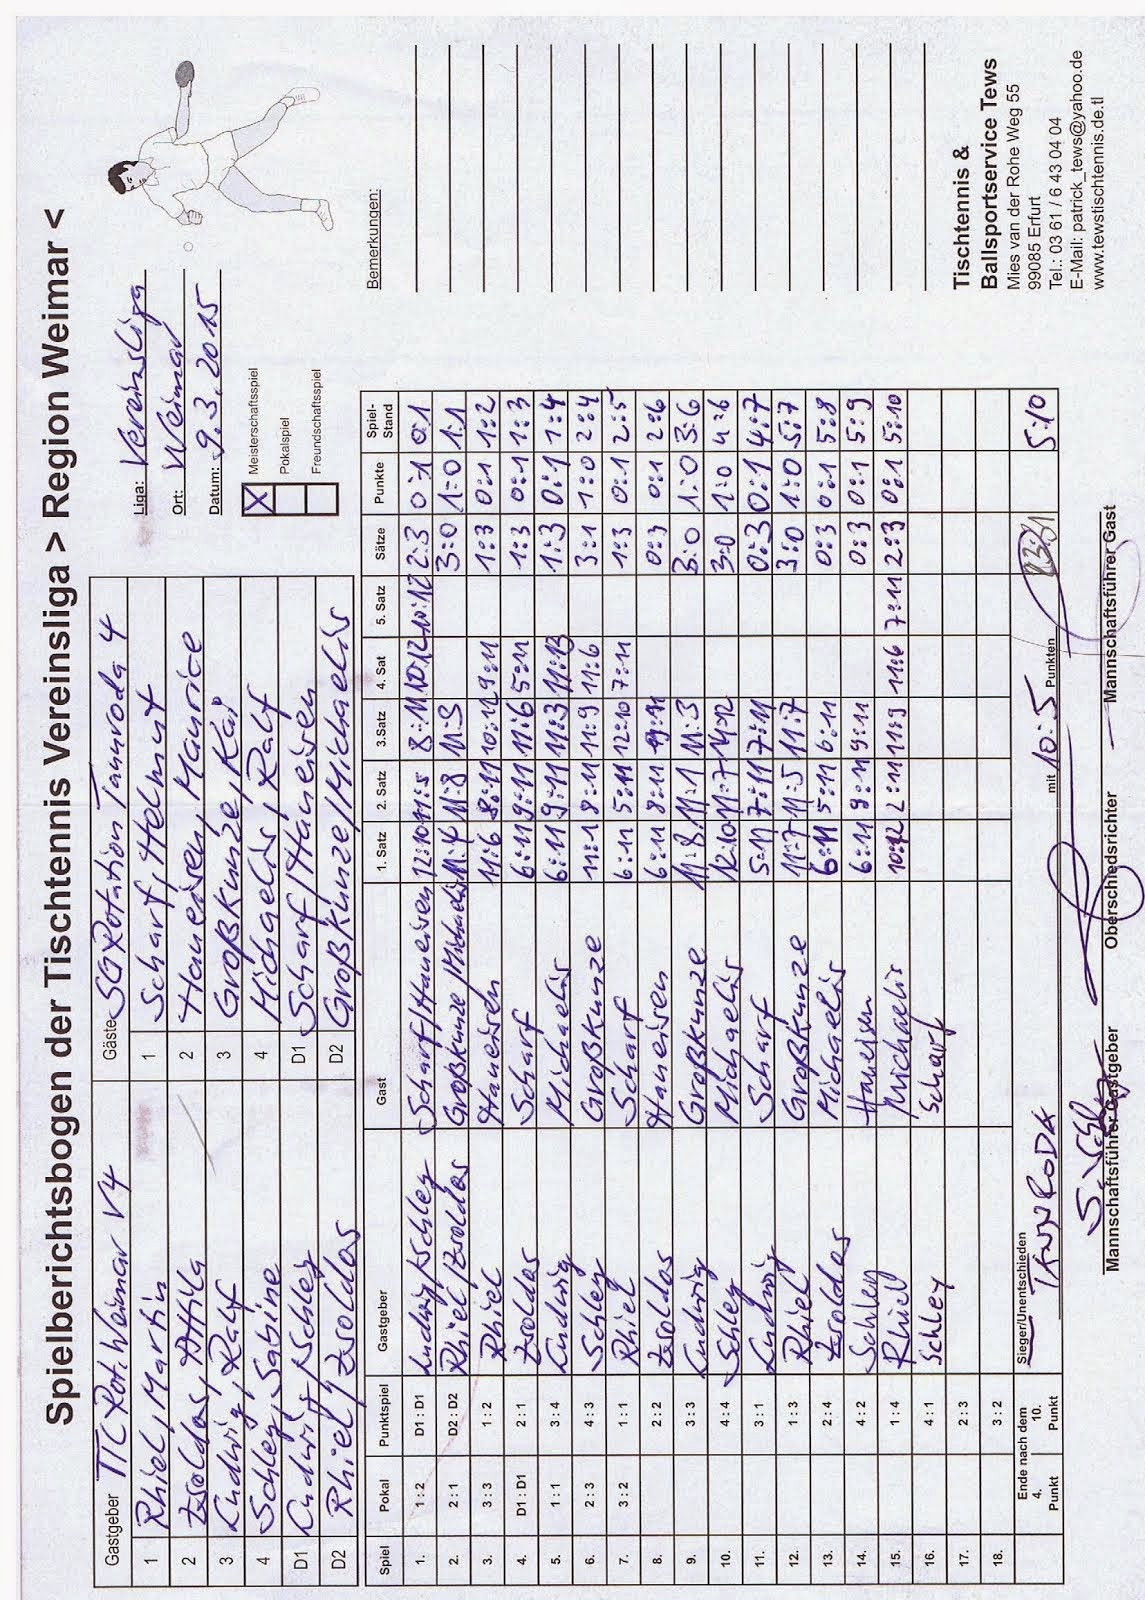 Spielberichtsbogen der Tischtennis Vereinsliga > Region Weimar <
Gastgeber TTC Rot. Weimar V4 Gäste SG Rotation Tannroda 4
1 Rhiel, Martin 1 Scharf, Helmut
2 Zsoldos, Attila 2 Haueisen, Maurice
3 Ludwig, Ralf 3 Großkunze, Kai
4 Schley, Sabine 4 Michaelis, Ralf
D1 Ludwig/Schley D1 Scharf/Haueisen
D2 Rhiel/Zsoldos D2 Großkunze/Michaelis
Liga: Vereinsliga
Ort: Weimar
Datum: 9.3.2015
X Meisterschaftsspiel
Pokalspiel
Freundschaftsspiel
Spiel Pokal Punktspiel Gastgeber Gast 1. Satz 2. Satz 3.Satz 4. Sat 5. Satz Sätze Punkte Spiel-Stand
1. 1 : 2 D1 : D1 Ludwig/Schley Scharf/Haueisen 12:10 11:5 8:11 10:12 10:12 2:3 0:1 0:1
2. 2 : 1 D2 : D2 Rhiel/Zsoldos Großkunze/Michaelis 11:4 11:8 11:3 3:0 1:0 1:1
3. 3 : 3 1 : 2 Rhiel Haueisen 11:6 8:11 10:12 9:11 1:3 0:1 1:2
4. D1 : D1 2 : 1 Zsoldos Scharf 6:11 9:11 11:6 5:11 1:3 0:1 1:3
5. 1 : 1 3 : 4 Ludwig Michaelis 6:11 9:11 11:3 11:13 1:3 0:1 1:4
6. 2 : 3 4 : 3 Schley Großkunze 11:8 8:11 11:9 11:6 3:1 1:0 2:4
7. 3 : 2 1 : 1 Rhiel Scharf 6:11 5:11 12:10 7:11 1:3 0:1 2:5
8. 2 : 2 Zsoldos Haueisen 6:11 8:11 9:11 0:3 0:1 2:6
9. 3 : 3 Ludwig Großkunze 11:8 11:1 11:3 3:0 1:0 3:6
10. 4 : 4 Schley Michaelis 12:10 11:7 14:12 3:0 1:0 4:6
11. 3 : 1 Ludwig Scharf 5:11 7:11 7:11 0:3 0:1 4:7
12. 1 : 3 Rhiel Großkunze 11:7 11:5 11:7 3:0 1:0 5:7
13. 2 : 4 Zsoldos Michaelis 6:11 5:11 6:11 0:3 0:1 5:8
14. 4 : 2 Schley Haueisen 6:11 8:11 9:11 0:3 0:1 5:9
15. 1 : 4 Rhiel Michaelis 10:12 2:11 11:9 11:6 7:11 2:3 0:1 5:10
16. 4 : 1 Schley Scharf
17. 2 : 3
18. 3 : 2
Ende nach dem
4. 10.
Punkt Punkt
Sieger/Unentschieden TANNRODA mit 10:5 Punkten 5:10
Mannschaftsführer Gastgeber Oberschiedsrichter Mannschaftsführer Gast
Bemerkungen:
Tischtennis &
Ballsportservice Tews
Mies van der Rohe Weg 55
99085 Erfurt
Tel.: 03 61 / 6 43 04 04
E-Mail: patrick_tews@yahoo.de
www.tewstischtennis.de.tl